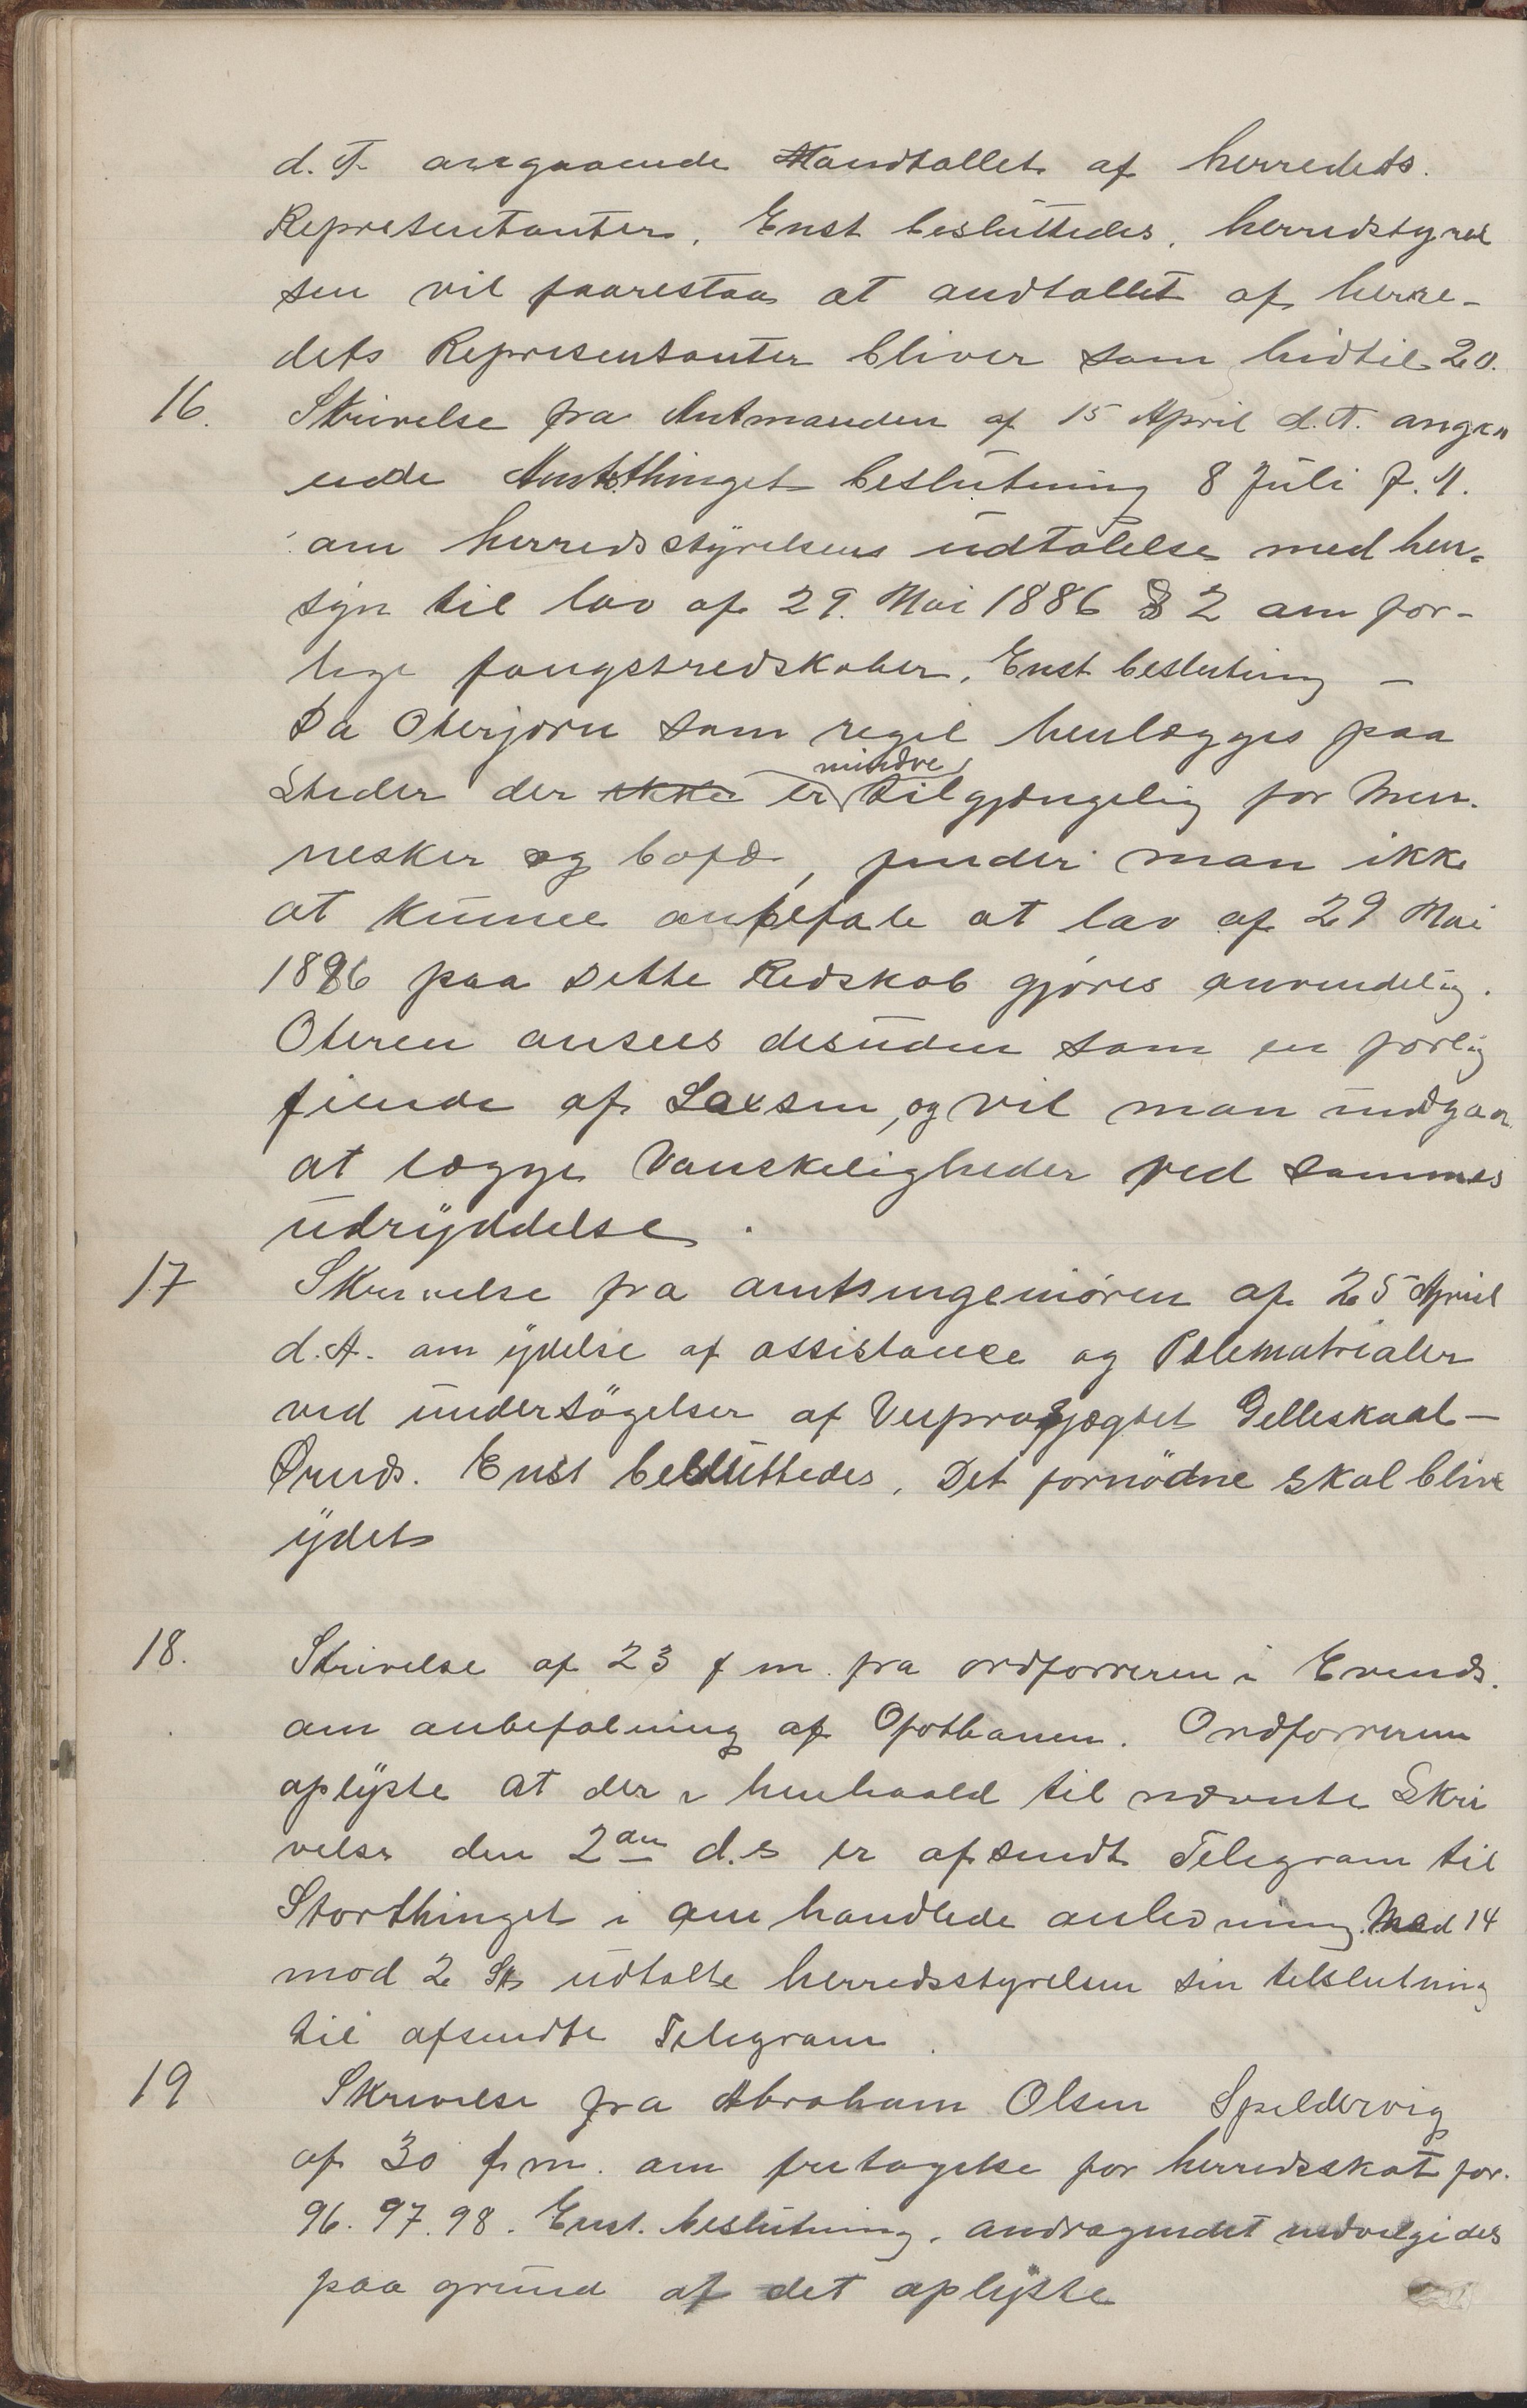 d. A. angaaende Mandtallet af herredets.
Representanter. Enst besluttedes, herredstyrel
sen vil foorestaa at andtallet af herre-
dets Representanter bliver som hidtil 20.
16. Skrivelse fra Amtmanden af 15 April d. A. angaa
ende Amtsthinget beslutning 8 Juli f. A.
om herredsstyrelsens udtalelse med hen-
syn til lov af 29. Mai 1886 § 2 om far-
lige fangstredskaber. Enst beslutning –
Da Oterjern som regel henlægges paa
Steder der ikke er mindre tilgjængelig for Men-
nesker og bofæ, finder man ikke
at kunne anbefale at lov af 29 Mai
1886 paa dette Redskab gjøres anvendelig.
Oteren ansees desuden som en farlig
fiende af Laxsen, og vil man undgaa
at lægge Vanskeligheder ved sammes
udryddelse.
17 Skrivelse fra amtsingeniøren af 25 April
d. A. om ydelse af assistance og Pælematrialer
ved undersøgelser af Veiprosjægtet Gelleskaal–
Ørnds. Enst besluttedes, Det fornødne skal blive
ydet
18. Skrivelse af 23 f m. fra ordføreren i Evends.
om anbefalning af Ofotbanen. Ordføreren
oplyste at der i henhaald til nævnte Skri
velse den 2den d.s er afsendt Telegram til
Storthinget i om handlede anledning. Med 14
mod 2 St udtalte herredsstyrelsen sin tilslutning
til afsendte Telegram.
19 Skrivelse fra Abraham Olsen Speldervig
af 30 f. m. om fritagelse for herredsskat for.
96. 97. 98. Enst. beslutning, andragendet
paa grund af det oplyste